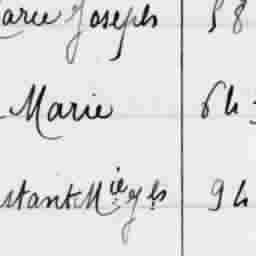 arie Joseph 58
Marie 64
stant Mie Jh 94